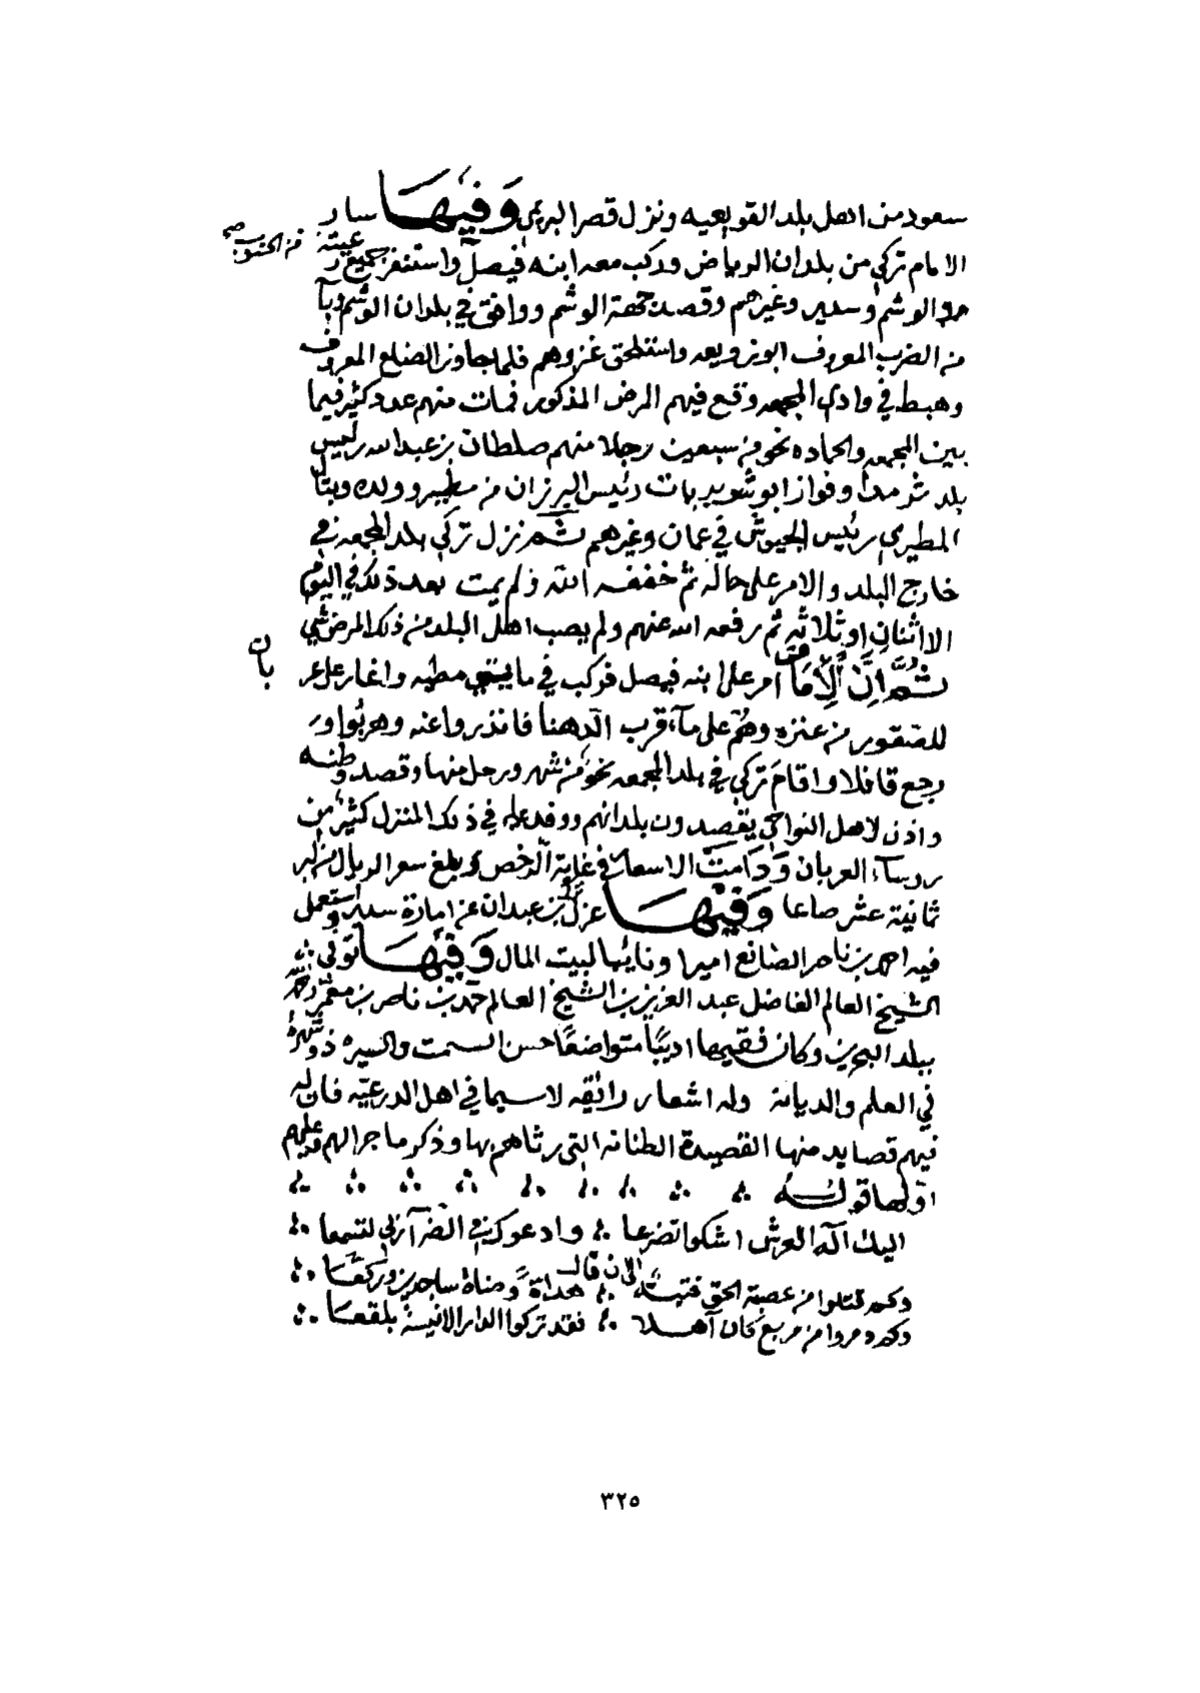 سعود من اهل بلد القويعيه ونزل قصر البريمي وَفيهَا سار
الامام تركي من بلدان الرياض وركب معه ابنه فيصل واستنفر جميع رعيته من الجنوب
الوشم وسدير وغيرهم وقصد جهة الوشم ووافق في بلدان الوشم وبآ
من الضرب المعروف ابو زويعه واستلحق غزوهم فلما جاوز الضلع المعروف
وهبط في وادي المجمعه وقع فيهم المرض المذكور فمات منهم عدد كثير فيما
بين المجمعه والحماده نحو من سبعين رجلا منهم سلطان بن عبدالله رئيس
بلد ثرمدا وفواز ابو شويربات رئيس البرزان من مطير وولده وبتال
المطيري رئيس الجيوش في عمان وغيرهم ثُمَّ نزل تركي بلد المجمعه في
خارج البلد والامر على حاله ثمَّ خففه الله فلم يمت بعد ذلك في اليوم
الا اثنان او ثلاثه ثم رفعه الله عنهم ولم يصب اهل البلد من ذلك المرض شي
ثُمَّ اِنَّ اَلاِمَامَ امر على ابنه فيصل فركب في مايتي مطيه واغار على عربان
للصقور من عنزه وهُم على مآء قرب الدهنا فانذروا عنه وهربُوا و
رجع قافلا واقامَ تركي في بلد المجمعه نحو من شهر ورحل منها وقصد وطنه
واذن لاهل النواحي يقصدون بلدانهم ووفد عليه في ذلك المنزل كثير من
روسآء العربان وَدَامت الاسعار في غاية الرخص وبلغ سعر الريال من البر
ثمانية عشر صاعا وَفيْهَا عزل تركي بن عبدان عن امارة سدير واستعمل
فيه احمد بن ناصر الصانع اميرا ونائبا لبيت المال وَفيْهَا توفى
الشيخ العالم الفاضل عبد العزيز بن الشيخ العالم حمد بن ناصر بن معمر رحمه الله
ببلد البحرين وكان فقيها اديبًا متواضعًا حسن السمت والسيره ذو شهرة
في العلم والديانة وله اشعار رائقه لاسيما في اهل الدرعيّه فان له
فيهم قصايد منها القصيدة الطنانه التي رثاهم بها وذكر ما جرا لهم وعليهم
اوّلها قوله
اليك اله العرش اشكوا تضرعا وادعوك في الضرآء ربي لتسمعا
الى ان قال
وكم قتلوا من عصبة الحق فتية هداة وضاة ساجدين وركعَّا
وكم دمروا من مربع كان آهلا فقد تركوا الدار الانيسة بلقعَا
٣٢٥